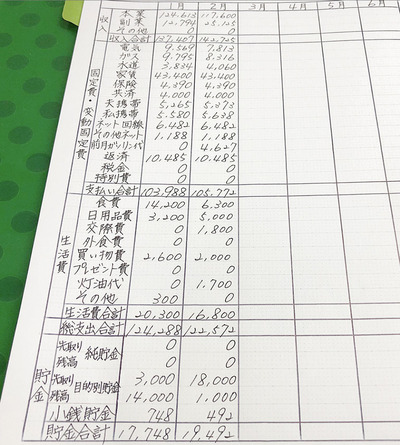 1月 2月 3月 4月 5月 6月
収入 本業 124,613 117,600
副業 12,794 25,125
その他 0 0
収入合計 137,407 142,725
固定費・変動固定費
電気 9,569 7,813
ガス 9,795 8,316
水道 3,834 4,060
家賃 43,400 43,400
保険 4,390 4,390
共済 4,000 4,000
夫携帯 5,265 5,373
私携帯 5,580 5,638
ネット回線 6,482 6,482
その他ネット 1,188 1,188
前月ガソリン代 0 4,627
返済 10,485 10,485
税金 0 0
特別費 0 0
支払い合計 103,988 105,772
生活費
食費 14,200 6,300
日用品費 3,200 5,000
交際費 0 1,800
外食費 0 0
買い物費 2,600 2,000
プレゼント費 0 0
灯油代 0 1,700
その他 300 0
生活費合計 20,300 16,800
総支出合計 124,288 122,572
貯金
先取り 純貯金 0 0
残高 0 0
先取り 目的別貯金 3,000 18,000
残高 14,000 1,000
小銭貯金 748 492
貯金合計 17,748 19,492